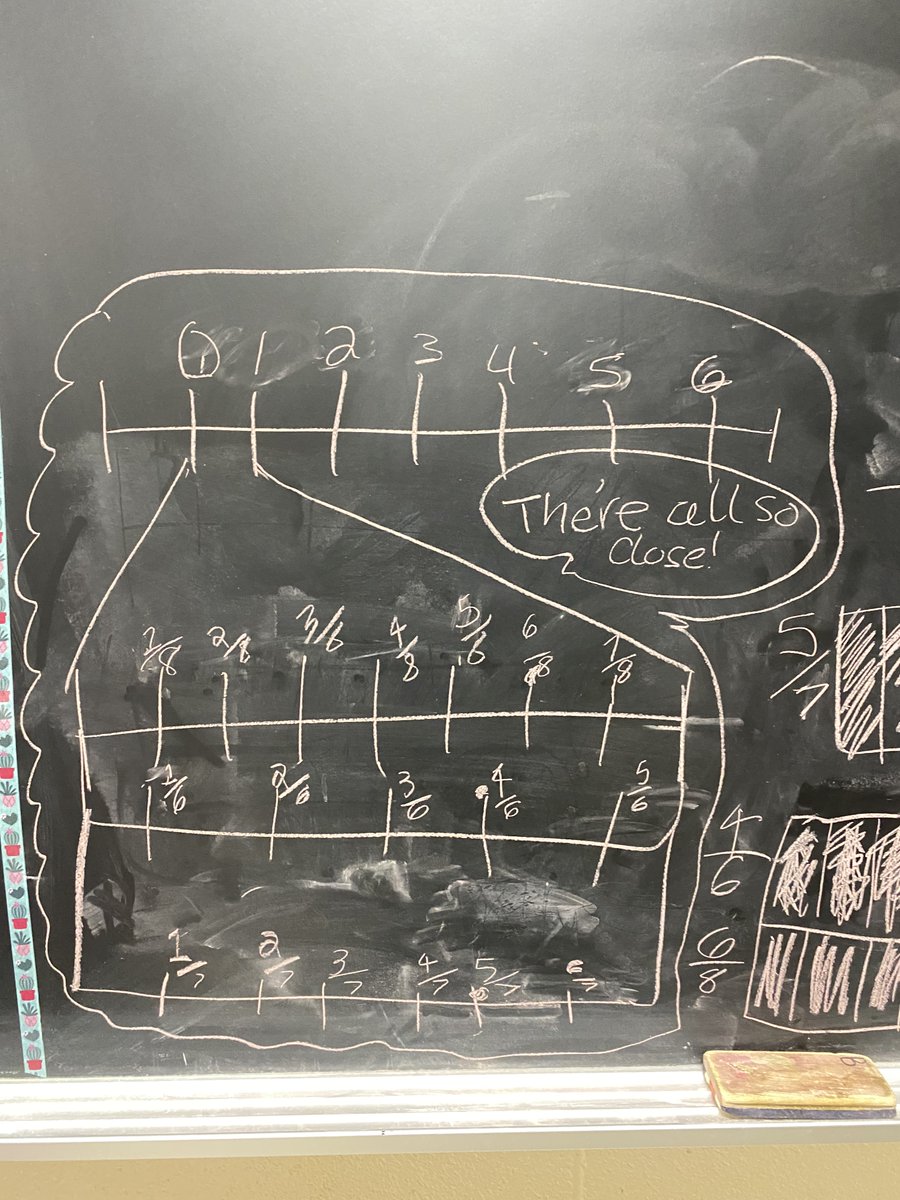 0 1 2 3 4 5 6
There'e all so
close!
1/8 2/8 3/8 4/8 5/8 6/8 7/8
5/7
1/6 2/6 3/6 4/6 5/6
4/6
6/8
1/7 2/7 3/7 4/7 5/7 6/7